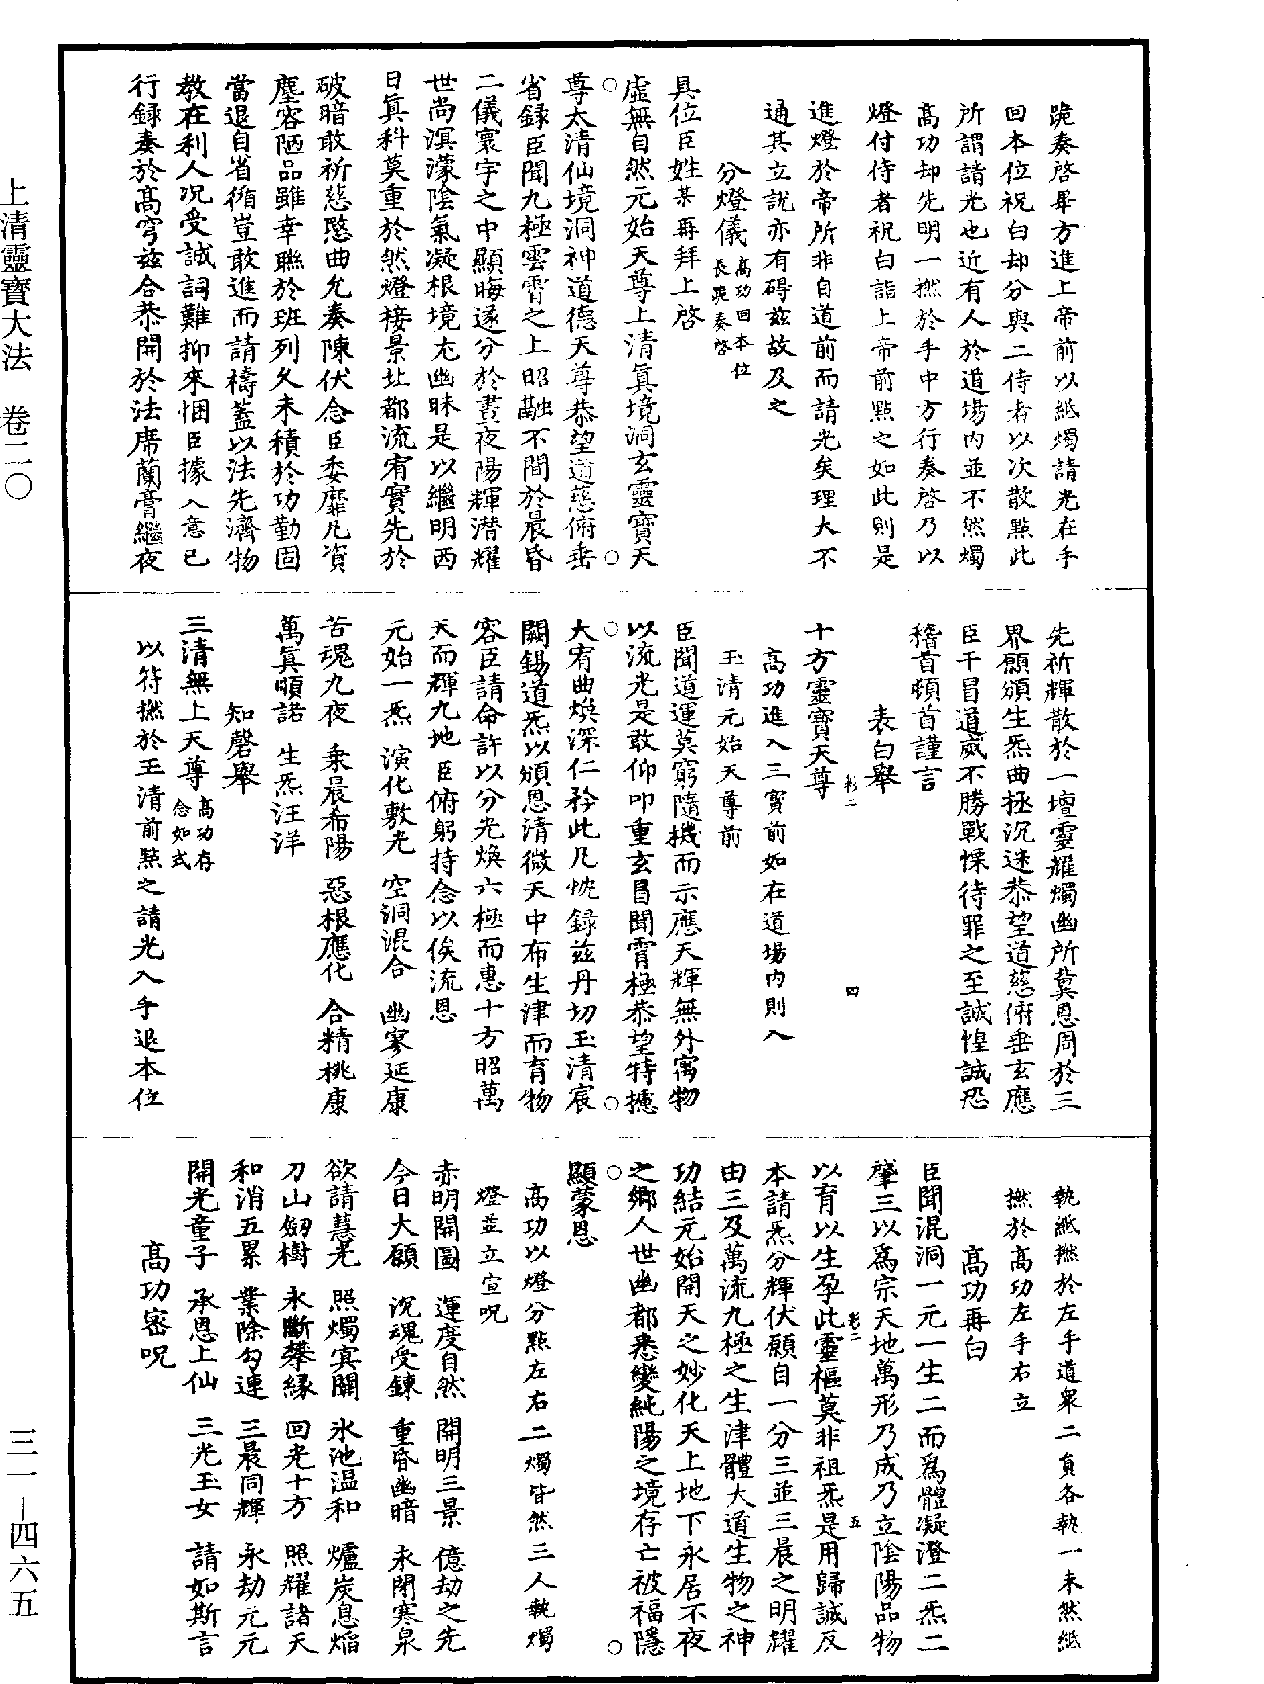 跪奏啓畢方進上帝前以紙燭請光在手
回本位祝白却分與二侍者以次散點此
所謂請光也近有人於道場內並不然燭
高功却先明一撚於手中方行奏啓乃以
燈付侍者祝白詣上帝前點之如此則是
進燈於帝所非自道前而請光矣理大不
通其立說亦有碍玆故及之
分燈儀高功回本位長跪奏啓
具位臣姓某再拜上啓
虛無自然元始天尊上清眞境洞玄靈寶天
尊太清仙境洞神道德天尊恭望道慈俯垂
省録臣聞九極雲霄之上昭融不間於晨昏
二儀寰宇之中顯晦遂分於晝夜陽輝潛耀
世尚溟濛陰氣凝根境尢幽昧是以繼明西
日眞科莫重於然燈接景北都流宥實先於
破暗敢祈慈愍曲允奏陳伏念臣委靡凡資
塵容陋品雖幸聯於班列久未積於功勤固
當退自省循豈敢進而請禱蓋以法先濟物
教在利人況受誠詞難抑來悃臣據入意已
行録奏於高穹玆合恭開於法席蘭膏繼夜
先祈輝散於一壇靈耀燭幽所冀恩周於三
界願頒生炁曲拯沉迷恭望道慈俯垂玄應
臣干冒道威不勝戰慄待罪之至誠惶誠恐
稽首頓首謹言
表白舉
十方靈寶天尊
高功進入三寶前如在道場內則入
玉清元始天尊前
臣聞道運莫窮隨機而示應天輝無外寓物
以流光是敢仰叩重玄冒聞霄極恭望特攄
大宥曲煥深仁矜此凡忱録玆丹切玉清宸
闕錫道炁以頒恩清微天中布生津而育物
容臣請命許以分光煥六極而惠十方昭萬
天而輝九地臣俯躬持念以俟流恩
元始一炁 演化敷光 空洞混合 幽寥延康
苦魂九夜 乗晨希陽 惡根應化 合精桃康
萬眞順諾 生炁汪洋
知磬舉
三清無上天尊高功存念如式
以符撚於玉清前點之請光入手退本位
執紙撚於左手道衆二負各執一未然紙
撚於高功左手右立
高功再白
臣聞混洞一元一生二而爲體凝澄二炁二
肇三以爲宗天地萬形乃成乃立陰陽品物
以育以生孕此靈樞莫非祖炁是用歸誠反
本請炁分輝伏願自一分三並三晨之明耀
由三及萬流九極之生津體大道生物之神
功結元始開天之妙化天上地下永居不夜
之鄉人世幽都悉變純陽之境存亡被福隱
顯蒙恩
高功以燈分點左右二燭皆然三人執燭
燈並立宣呪
赤明開圖 運度自然 開明三景 億劫之先
今日大願 沉魂受鍊 重昏幽暗 永閉寒泉
欲請慧光 照燭㝠關 氷池温和 爐炭息焰
刀山劒樹 永斷攀縁 回光十方 照耀諸天
和消五累 業除勾連 三晨同輝 永劫元元
開光童子 承恩上仙 三光玉女 請如斯言
高功密呪
上清靈寶大法 卷二〇
三一—四六五